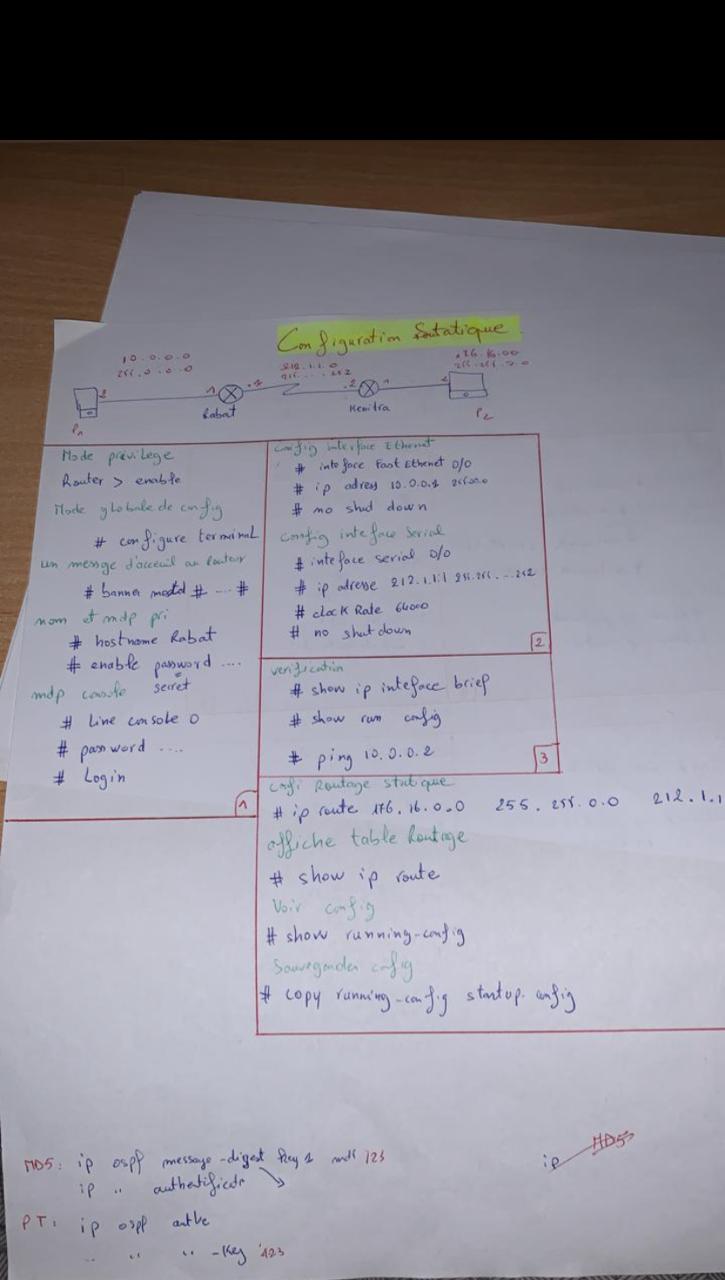 Configuration Statatique
10.0.0.0
255.0.0.0
212.1.1.0
176.16.00
2
1
.1
.2
1
2
P1
Rabat
Kenitra
P2
Mode privilege
Router > enable
Mode globale de config
# configure terminal
un message d'acceuil au Routeur
# banner motd # .... #
nom et mdp pri
# hostname Rabat
# enable password ....
secret
mdp console
# Line console 0
# password ....
# Login
1
config interface Ethernet
# inteface Fast Ethenet 0/0
# ip adress 10.0.0.1 255.0.0.0
# no shud down
Config inteface Serial
# inteface serial 0/0
# ip adresse 212.1.1.1 255.255. ... 252
# clock Rate 64000
# no shutdown
2
verification
# show ip inteface brief
# show run config
# ping 10.0.0.2
3
confi Routage statique
# ip route 176.16.0.0 255.255.0.0 212.1.1
affiche table Routage
# show ip route
Voir config
# show running-config
Sauvegarder config
# copy running-config startup-config
MD5: ip ospf message-digest key 1 md5 123
ip ,,
PT: ip ospf
,, ,, ,, -Key 123
ip MD5